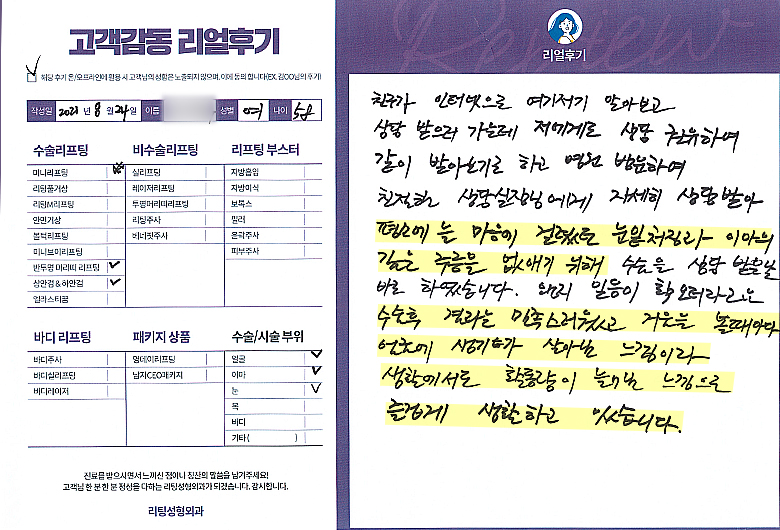 고객감동 리얼후기
해당 후기 온/오프라인에 활용 시 고객님의 성함은 노출되지 않으며, 이에 동의 합니다(EX. 김OO님의 후기)
작성일 2021 년 8 월 24 일 이름 성별 여 나이 50
수술리프팅
미니리프팅
리팅풀거상
리팅M리프팅
안면거상
볼턱리프팅
미니브이리프팅
반투명 머리띠 리프팅
상안검 & 하안검
엘라스티꿈
비수술리프팅
실리프팅
레이저리프팅
투명머리띠리프팅
리팅주사
비너핏주사
리프팅 부스터
지방흡입
지방이식
보톡스
필러
윤곽주사
피부주사
바디 리프팅
바디주사
바디실리프팅
바디레이저
패키지 상품
명데이리프팅
남자CEO패키지
수술/시술 부위
얼굴
이마
눈
목
바디
기타( )
진료를 받으시면서 느끼신 점이나 칭찬의 말씀을 남겨주세요!
고객님 한 분 한 분 정성을 다하는 리팅성형외과가 되겠습니다. 감사합니다.
리팅성형외과
Review
리얼후기
친구가 인터넷으로 여기저기 알아보고
상담 받으러 가는데 저에게도 상담 권유하여
같이 받아보기로 하고 병원 방문하여
친절하신 상담실장님에게 자세히 상담받아
평소에 늘 마음에 걸렸던 눈밑처짐과 이마의
깊은 주름을 없애기 위해 수술을 상담 받은날
바로 하였습니다. 왠지 믿음이 확 오더라고요
수술후 결과는 만족스러웠고 거울을 볼때마다
얼굴에 생기가 살아난 느낌이라
생활에서도 활력이 늘어난 느낌으로
즐겁게 생활하고 있습니다.